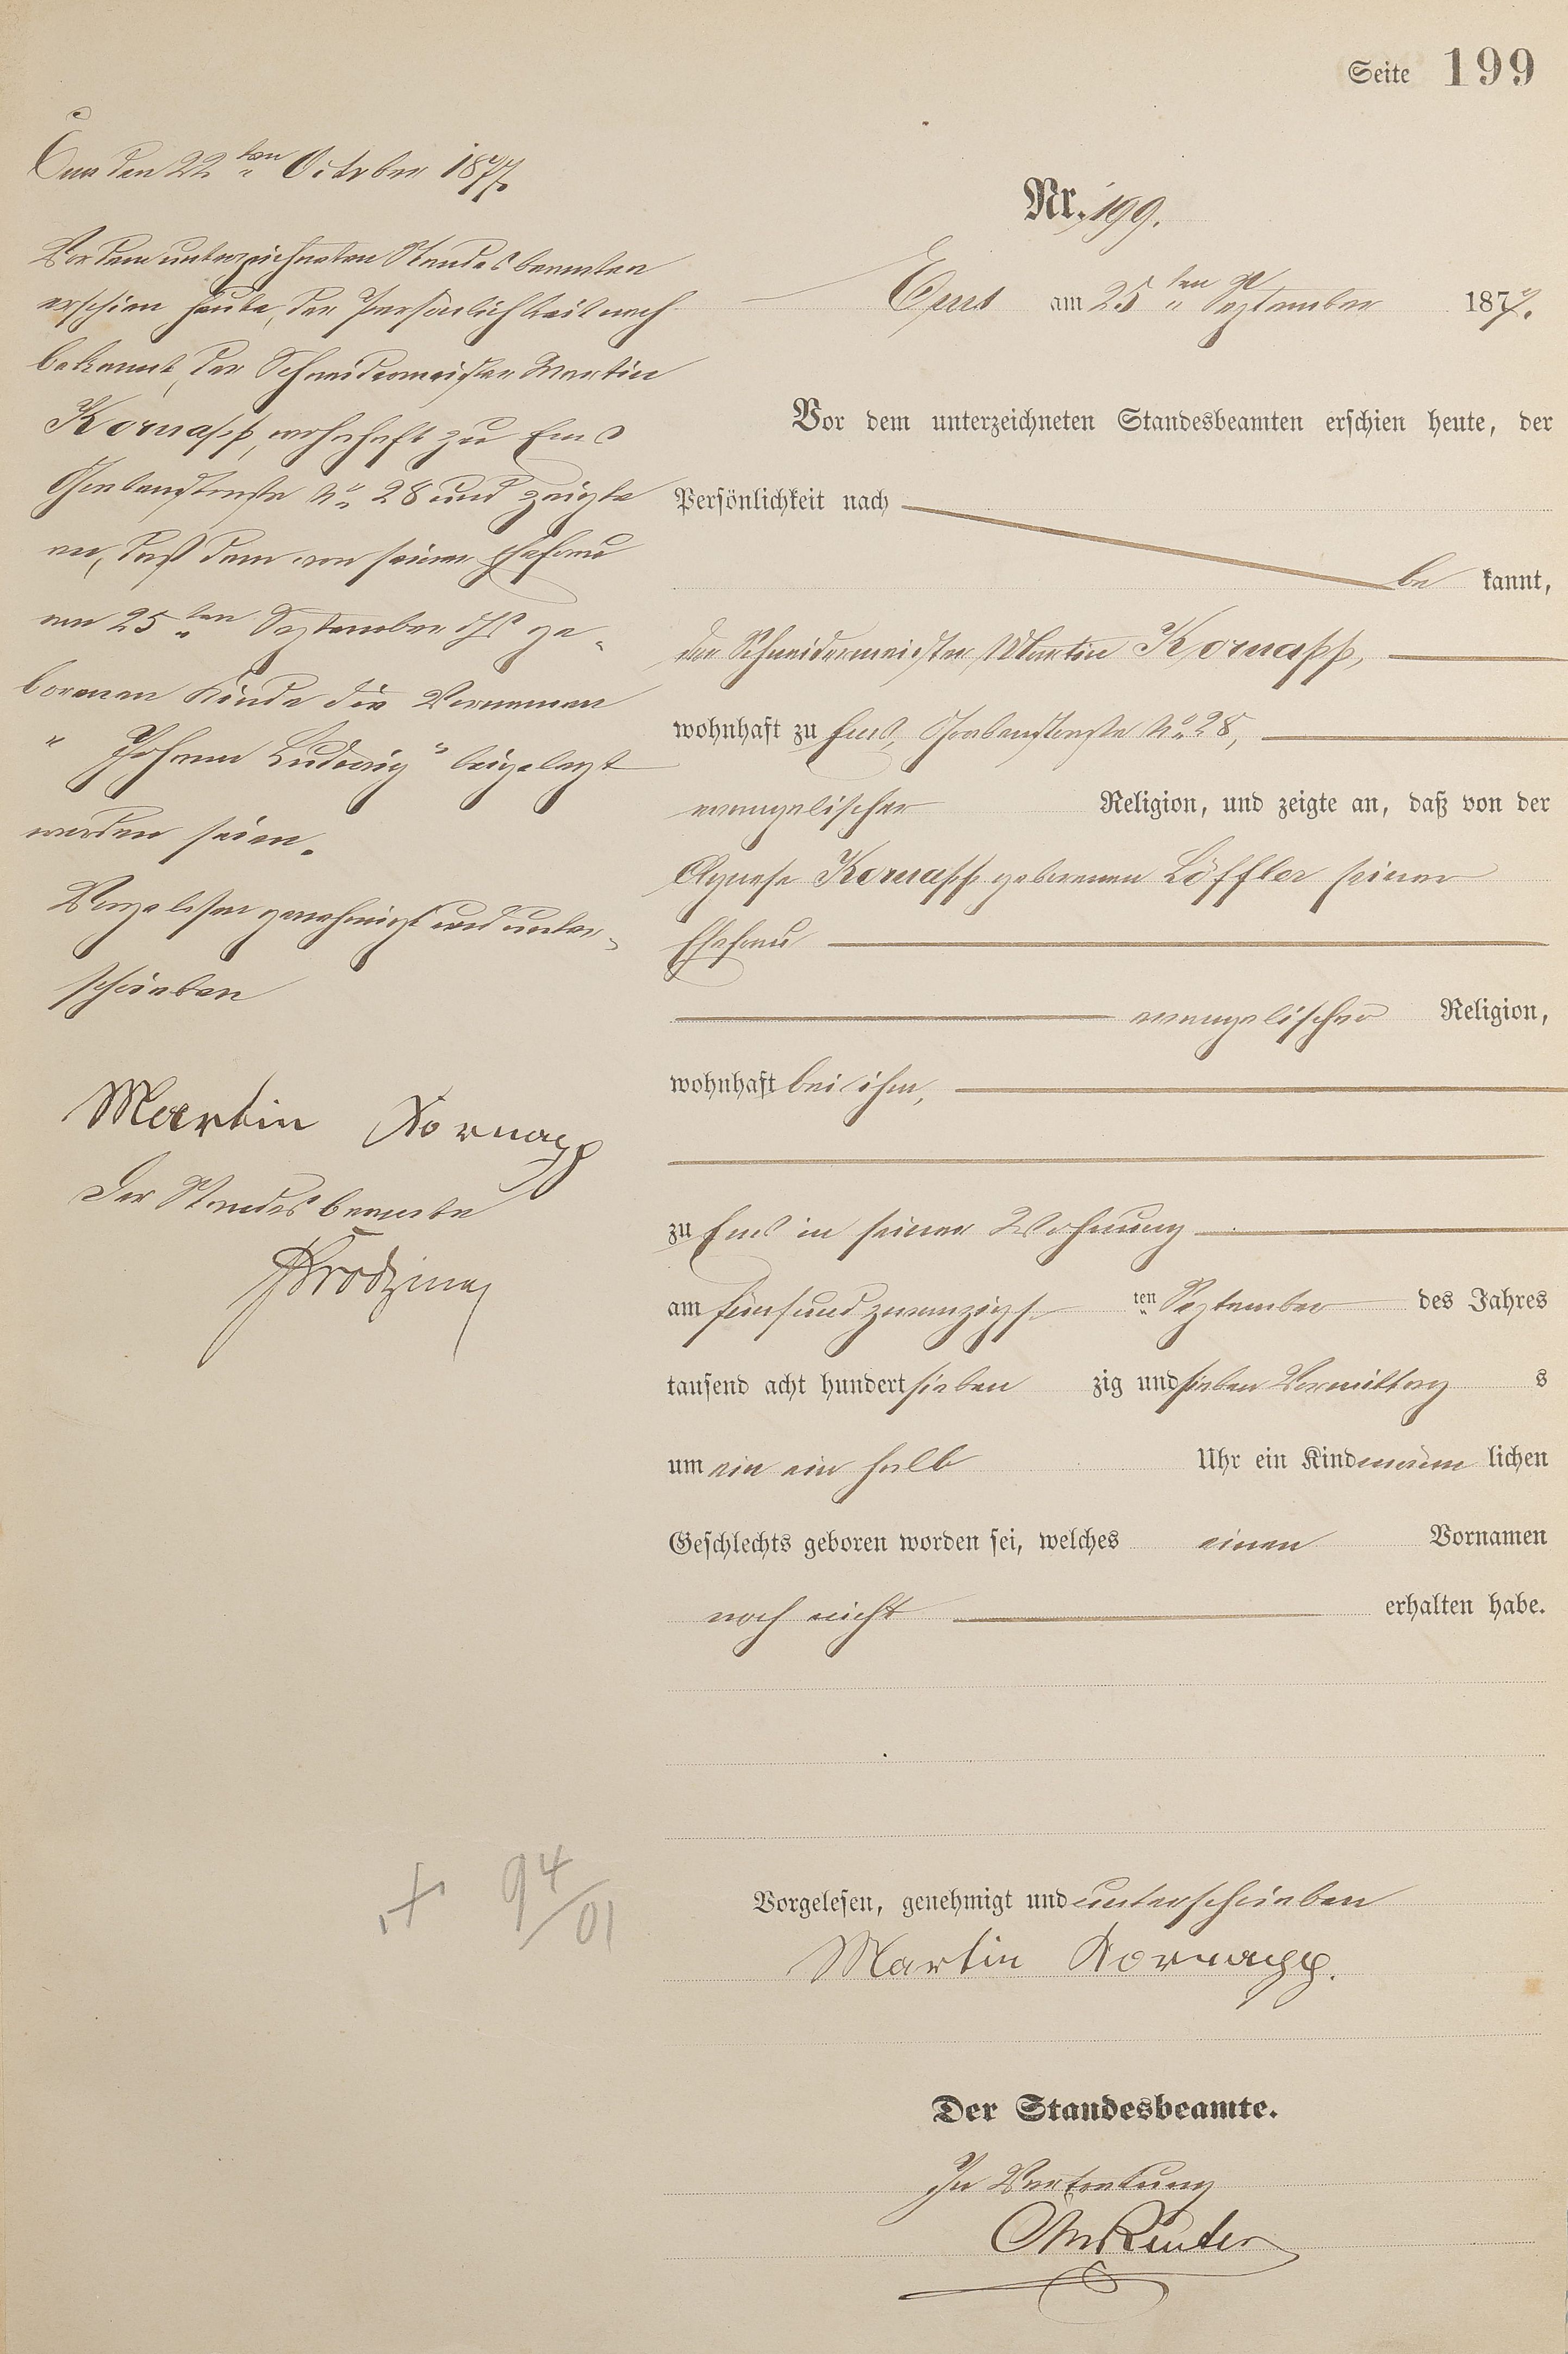 Seite 199
Ems den 22ten October 1877.
Vor dem unterzeichneten Standesbeamten
erschien heute, der Persönlichkeit nach
bekannt, der Schneidermeister Martin
Kornapp, wohnhaft zu Ems
Grabenstraße No. 28 und zeigte
an, daß dem von seiner Ehefrau
am 25ten September ds Js ge-
borenen Kinde die Vornamen
"Johann Ludwig" beigelegt
worden seien.
Vorgelesen genehmigt und unter-
schrieben
Martin Kornapp
Der Standesbeamte
+ 94/01
Nr. 199.
Ems am 25ten September 1877.
Vor dem unterzeichneten Standesbeamten erschien heute, der
Persönlichkeit nach
be kannt,
der Schneidermeister Martin Kornapp,
wohnhaft zu Ems, Grabenstraße No. 28,
evangelischer Religion, und zeigte an, daß von der
Agnese Kornapp geborenen Löffler seiner
Ehefrau
evangelischer Religion,
wohnhaft bei ihm,
zu Ems in seiner Wohnung
am fünfundzwanzigs ten September des Jahres
tausend acht hundert sieben zig und sieben Vormittag s
um ein ein halb Uhr ein Kind männ lichen
Geschlechts geboren worden sei, welches einen Vornamen
noch nicht erhalten habe.
Vorgelesen, genehmigt und unterschrieben
Martin Kornapp.
Der Standesbeamte.
In Vertretung